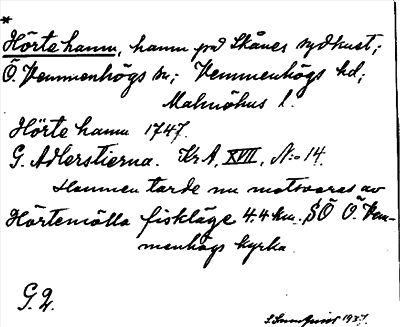 *
Hörte hamn, hamn på Skånes sydkust;
Ö. Vemmenhögs sn; Vemmenhögs hd;
Malmöhus l.
Hörte hamn 1747.
G. Adlerstierna. Kr A, XVII, N:o 14.
Hamnen torde nu motsvaras av
Hörtemölla fiskläge 4.4 km. SÖ Ö. Vem-
menhögs kyrka.
G. 2.
1937.